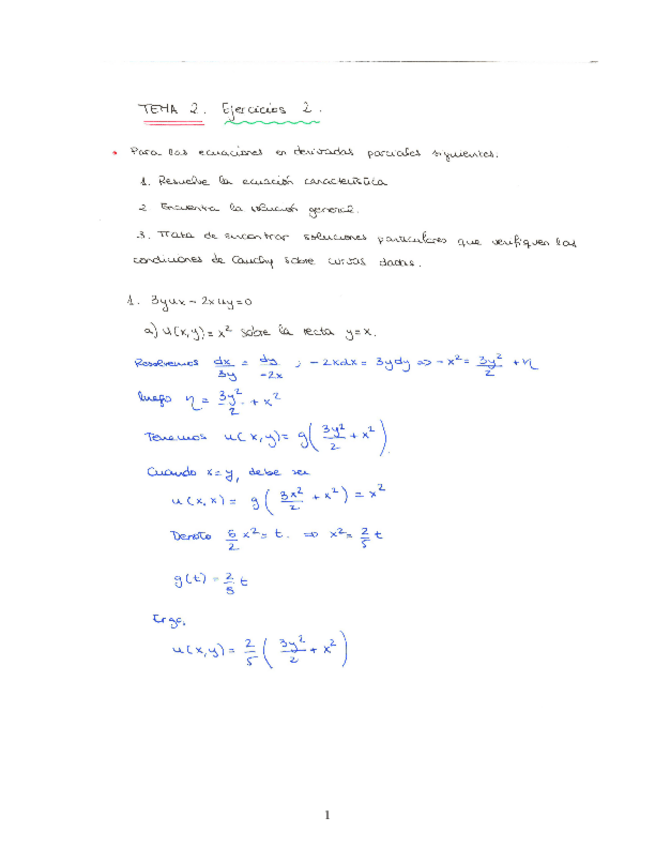 TEMA 2. Ejercicios 2.
• Para las ecuaciones en derivadas parciales siguientes:
1. Resuelve la ecuación característica
2 Encuentra la solución general.
3. Trata de encontrar soluciones particulares que verifiquen las
condiciones de Cauchy sobre curvas dadas.
1. 3yux - 2xuy = 0
a) u(x,y) = x² sobre la recta y = x.
Resolvemos dx/3y = dy/-2x ; -2xdx = 3ydy => -x² = 3y²/2 + η
luego η = 3y²/2 + x²
Tenemos u(x,y) = g(3y²/2 + x²).
Cuando x=y, debe ser
u(x,x) = g(3x²/2 + x²) = x²
Denoto 5/2 x² = t. => x² = 2/5 t
g(t) = 2/5 t
Ergo,
u(x,y) = 2/5 (3y²/2 + x²)
1